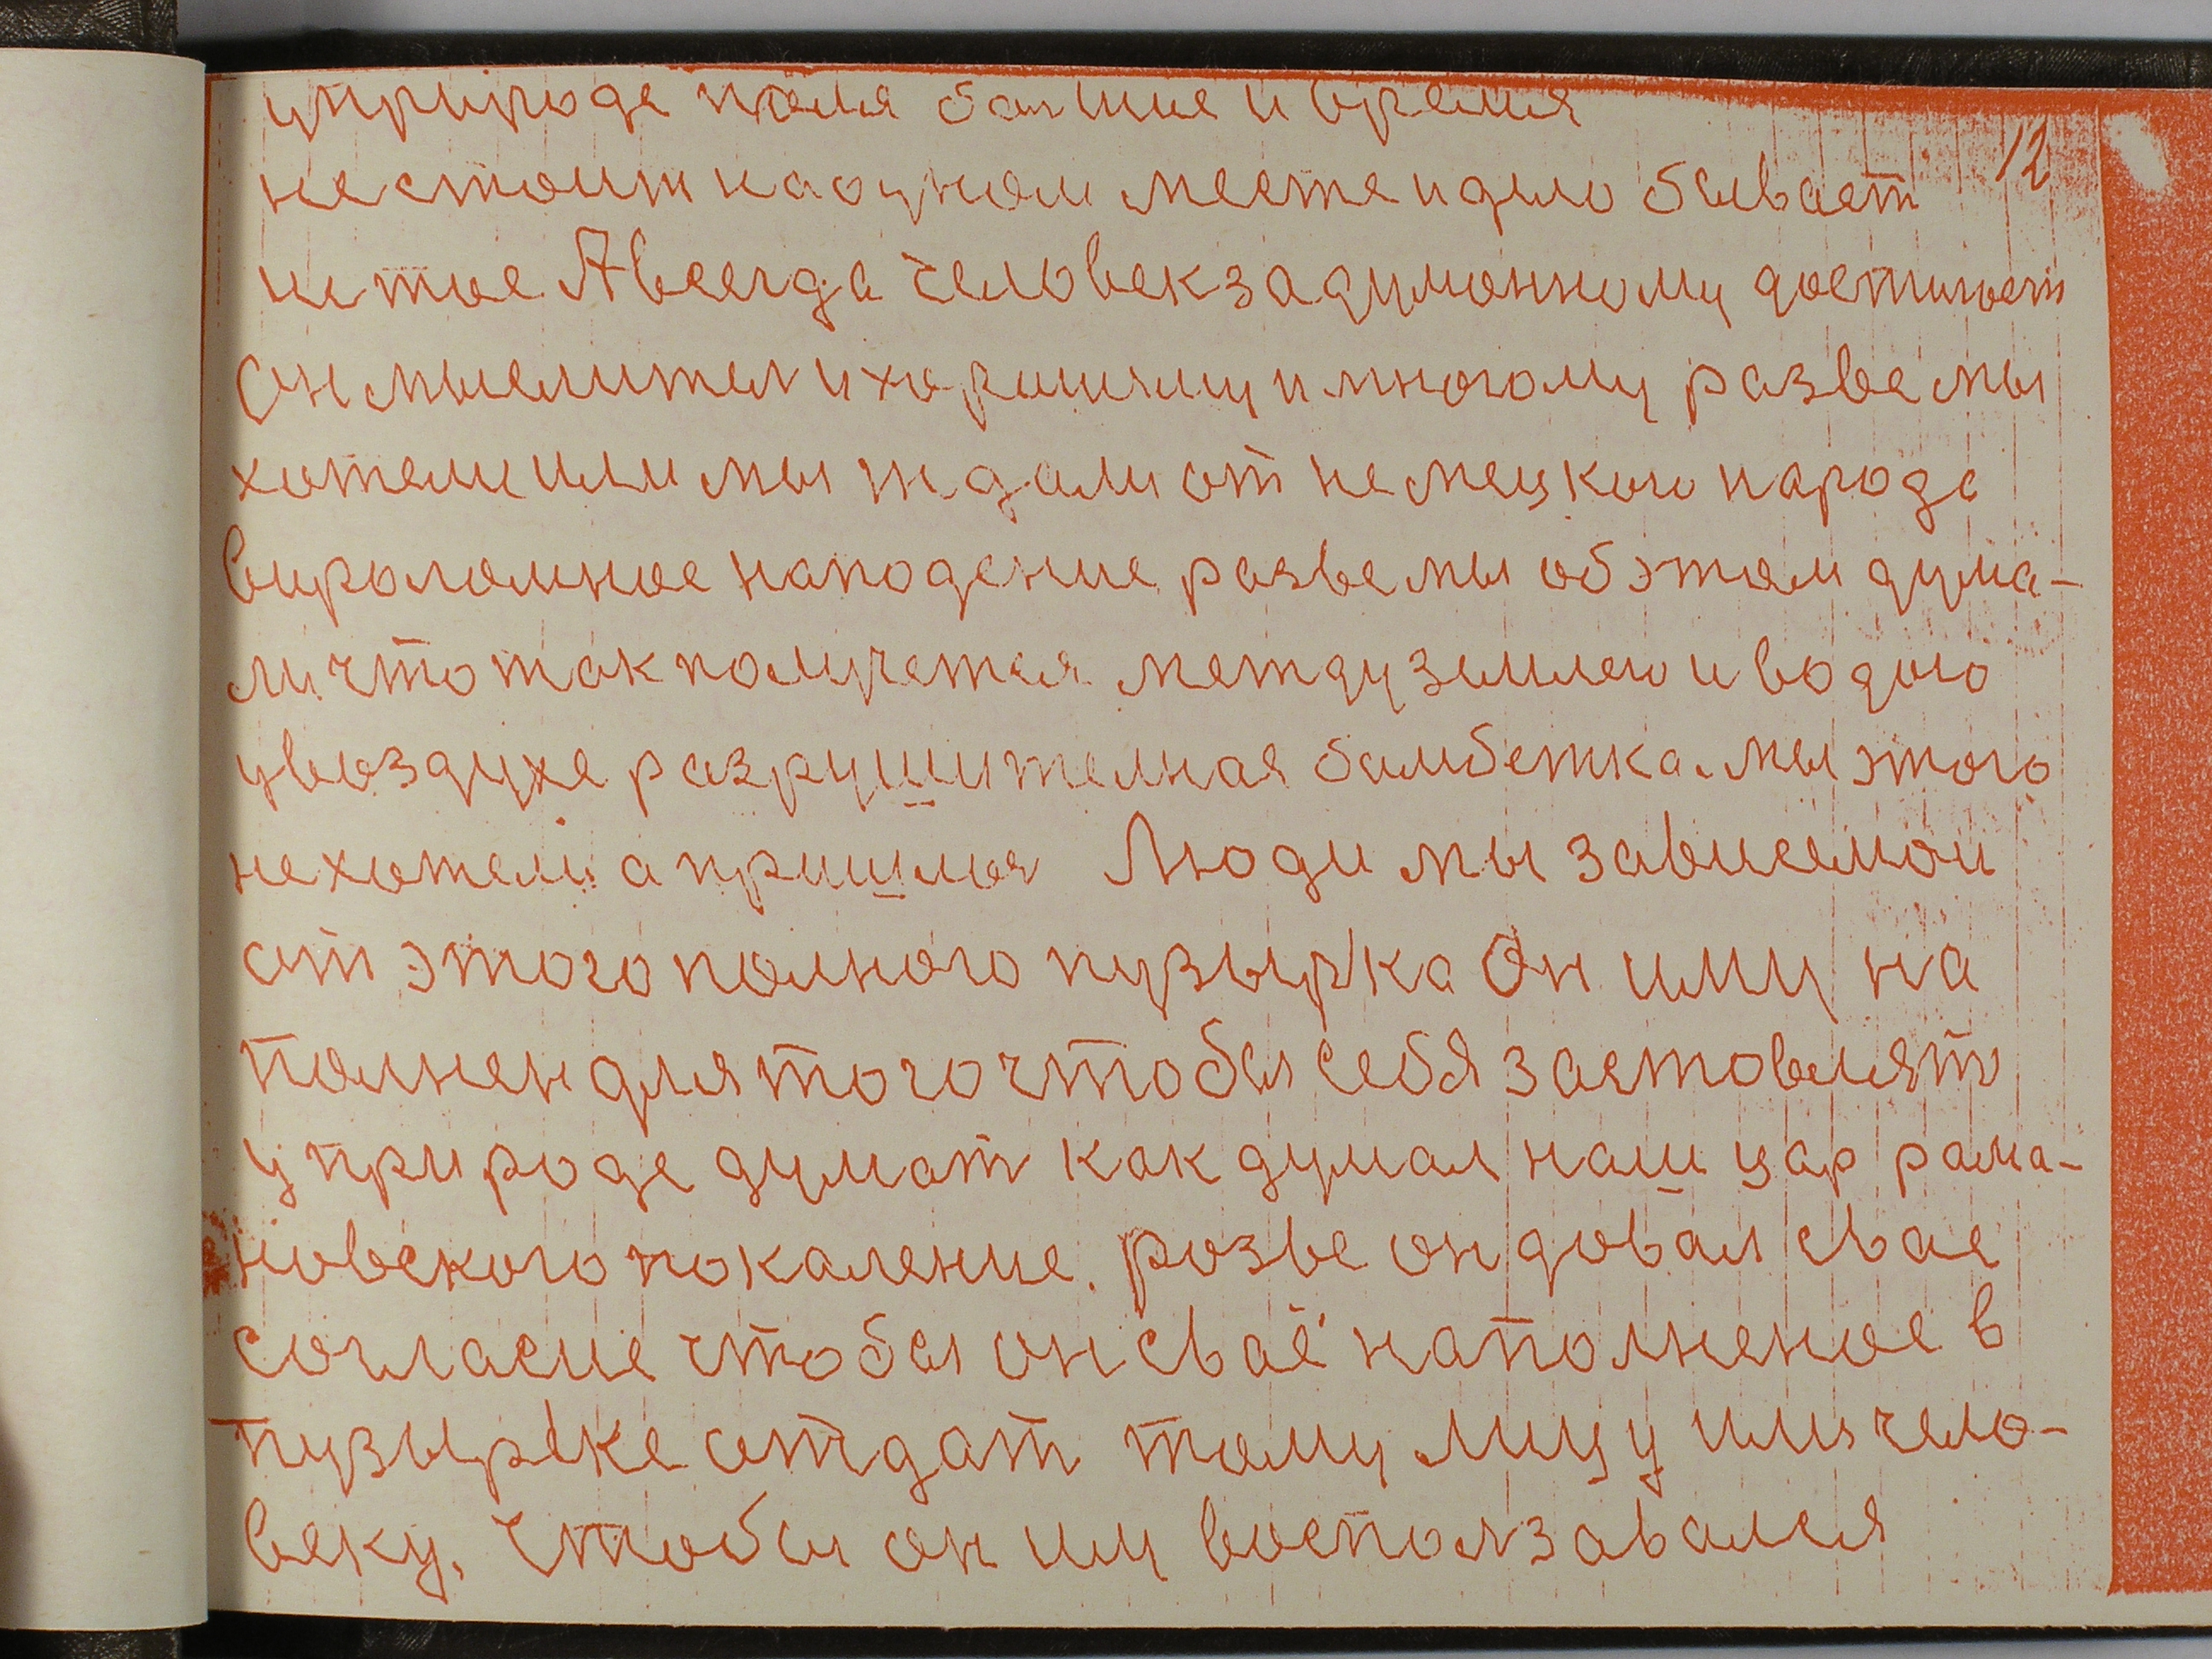 уприроде поля болшие и время
12
не стоит на одном месте и дело бывает
не тое А всегда человек задуманному достигает
Он мыслител и хорошему и многому разве мы
хотели или мы ждали от немецкого народа
вироломное нападение разве мы об этом дума-
ли что так получется между землею и водою
у воздухе разрушителная бомбежка. мы этого
не хотели а пришлоя Люди мы зависемои
от этого полного пузырка Он ими на
полнен для того чтобы себя заставлят
у природе думат как думал наш цар рома-
новского покаление. розве он довал свае
согласие чтобы он сваё наполненое в
пузырке отдат тому лицу или чело-
веку. Чтобы он им воспользовался